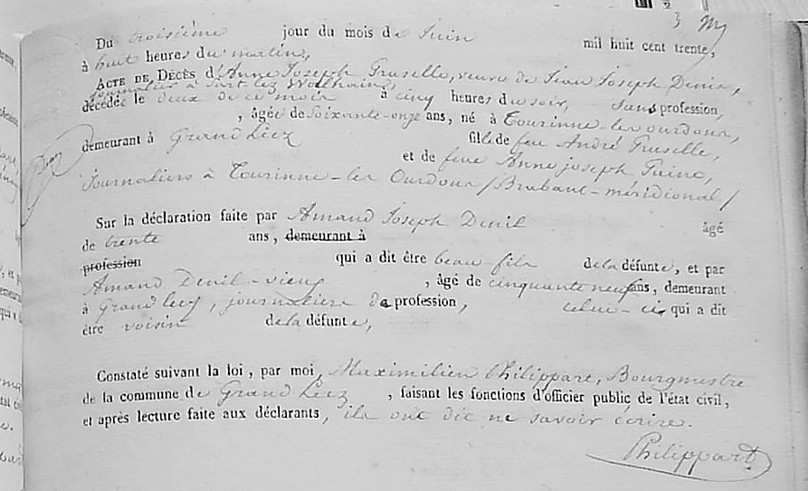 Du troisième jour du mois de Juin mil huit cent trente,
à huit heures du matin,
ACTE DE DÉCÈS d'Anne Joseph Gruselle, veuve de Jean Joseph Denis,
journalier à Sart lez Walhain,
décédée le deux de ce mois à cinq heures du soir, sans profession,
, âgée de soixante-onze ans, né à Tourinne-les ourdons,
demeurant à Grand Leez fille de feu André Gruselle,
et de feue Anne joseph Paine,
Journaliers à Tourinne-les Ourdons / Brabant-méridional /
Sur la déclaration faite par Amand Joseph Denil âgé
de trente ans, demeurant à
profession qui a dit être beau-fils de la défunte, et par
Amand Denil-vieux , âgé de cinquante neuf ans, demeurant
à Grand leez, journalier de profession, celui-ci qui a dit
être voisin de la défunte,
Constaté suivant la loi, par moi, Maximilien Philippart, Bourgmestre
de la commune de Grand Leez , faisant les fonctions d'officier public de l'état civil,
et après lecture faite aux déclarants, ils ont dit ne savoir écrire.
Philippart